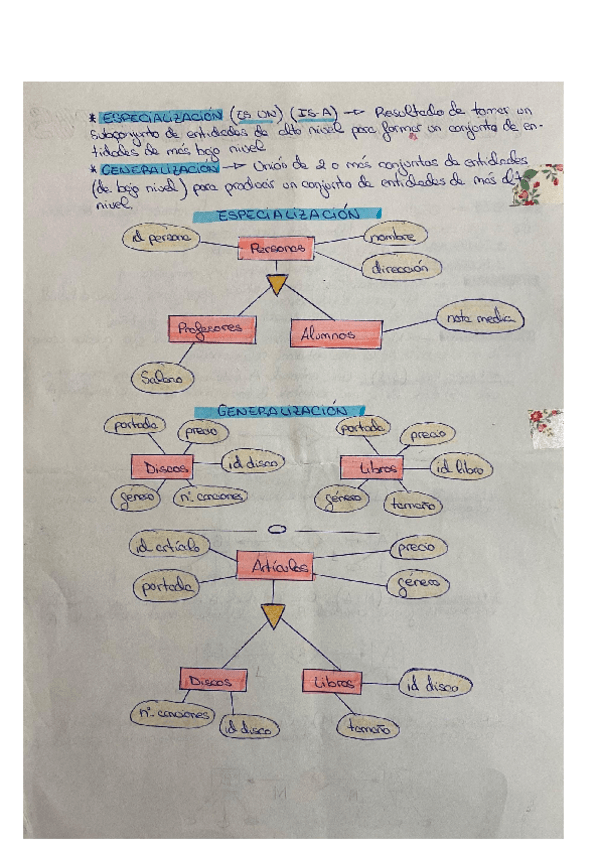 * ESPECIALIZACIÓN (ES UN) (IS-A) → Resultado de tomar un
subconjunto de entidades de alto nivel para formar un conjunto de en-
tidades de más bajo nivel
* GENERALIZACIÓN → Unión de 2 o más conjuntos de entidades
(de bajo nivel) para producir un conjunto de entidades de más
nivel.
ESPECIALIZACIÓN
id persona
Personas
nombre
dirección
Profesores
Alumnos
nota media
Salario
GENERALIZACIÓN
portada
precio
Discos
id disco
género
nº canciones
portada
precio
Libros
id libro
género
tamaño
id artículo
Artículos
precio
portada
género
Discos
Libros
id disco
nº canciones
id disco
tamaño